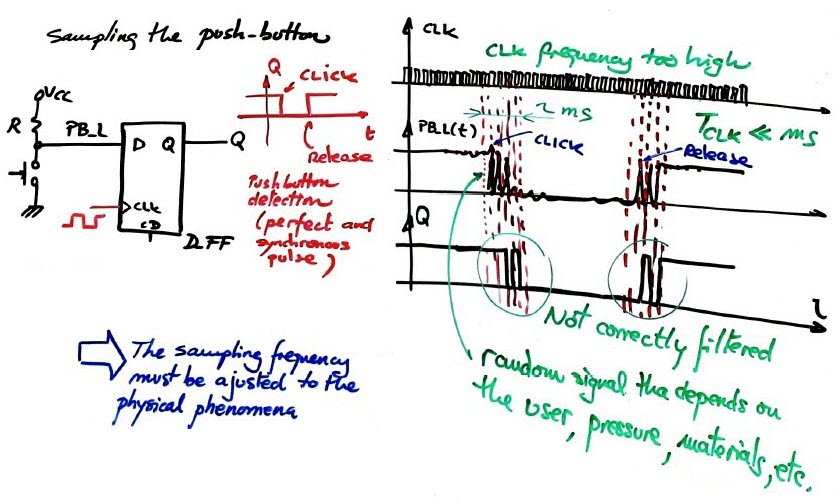 Sampling the push-button
VCC
R
PB_L
D Q
Q
CLK
CD
D_FF
Q
CLICK
t
Release
Push button
detection
(perfect and
synchronous
pulse)
The sampling frequency
must be ajusted to the
physical phenomena
CLK
CLK frequency too high
~ ms
PB_L(t)
CLICK
TCLK << ms
Release
Q
t
Not correctly filtered
random signal tha depends on
the user, pressure, materials, etc.